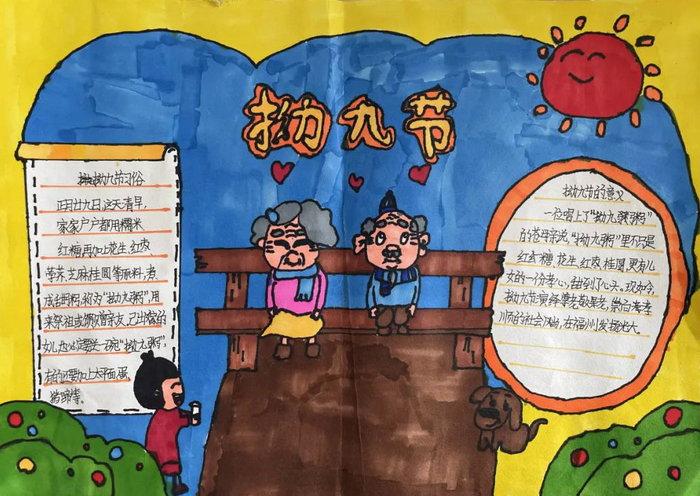 拗九节
拗九节习俗
正月廿九日,这天清早,
家家户户都用糯米
红糖,再加上花生、红枣、
荸荠、芝麻、桂圆等原料,煮
成甜粥,称为"拗九粥",用
来祭祖或馈赠亲友,已出嫁的
女儿也必定要送一碗"拗九粥",
有的还要加上太平面、蛋、
猪蹄等。
拗九节的意义
一位喝上了"拗九粥"
的老母亲说,"拗九粥"里不只是
红糖、花生、红枣、桂圆,更有儿
女的一份孝心,甜到了心头。现如今,
拗九节
的社会风尚,在福州发扬光大。